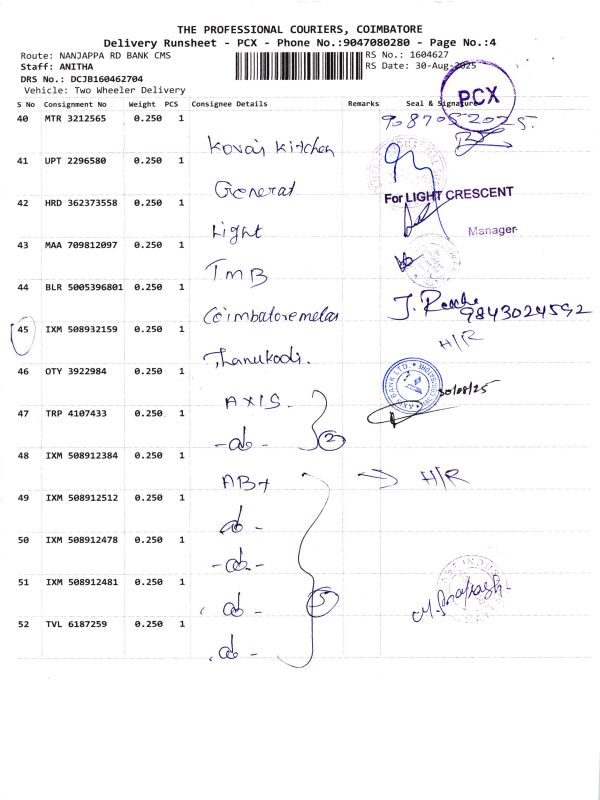 THE PROFESSIONAL COURIERS, COIMBATORE
Delivery Runsheet - PCX - Phone No.:9047080280 - Page No.:4
Route: NANJAPPA RD BANK CMS
RS No.: 1604627
Staff: ANITHA
RS Date: 30-Aug-2025
DRS No.: DCJB160462704
Vehicle: Two Wheeler Delivery
PCX
S No Consignment No Weight PCS Consignee Details Remarks Seal & Signature
40 MTR 3212565 0.250 1 Kovai Kitchen 9087052025.
41 UPT 2296580 0.250 1 General
For LIGHT CRESCENT
42 HRD 362373558 0.250 1 Light
Manager
43 MAA 709812097 0.250 1 TMB
44 BLR 5005396801 0.250 1 Coimbatore melas J. 9843024592
45 IXM 508932159 0.250 1 Thanukodi. H/R
46 OTY 3922984 0.250 1 AXIS - 30/08/25
AXIS BANK LTD.
47 TRP 4107433 0.250 1 -do- 2
48 IXM 508912384 0.250 1 ABT → H/R
49 IXM 508912512 0.250 1 do -
50 IXM 508912478 0.250 1 -do-
51 IXM 508912481 0.250 1 do - 5
52 TVL 6187259 0.250 1 do -